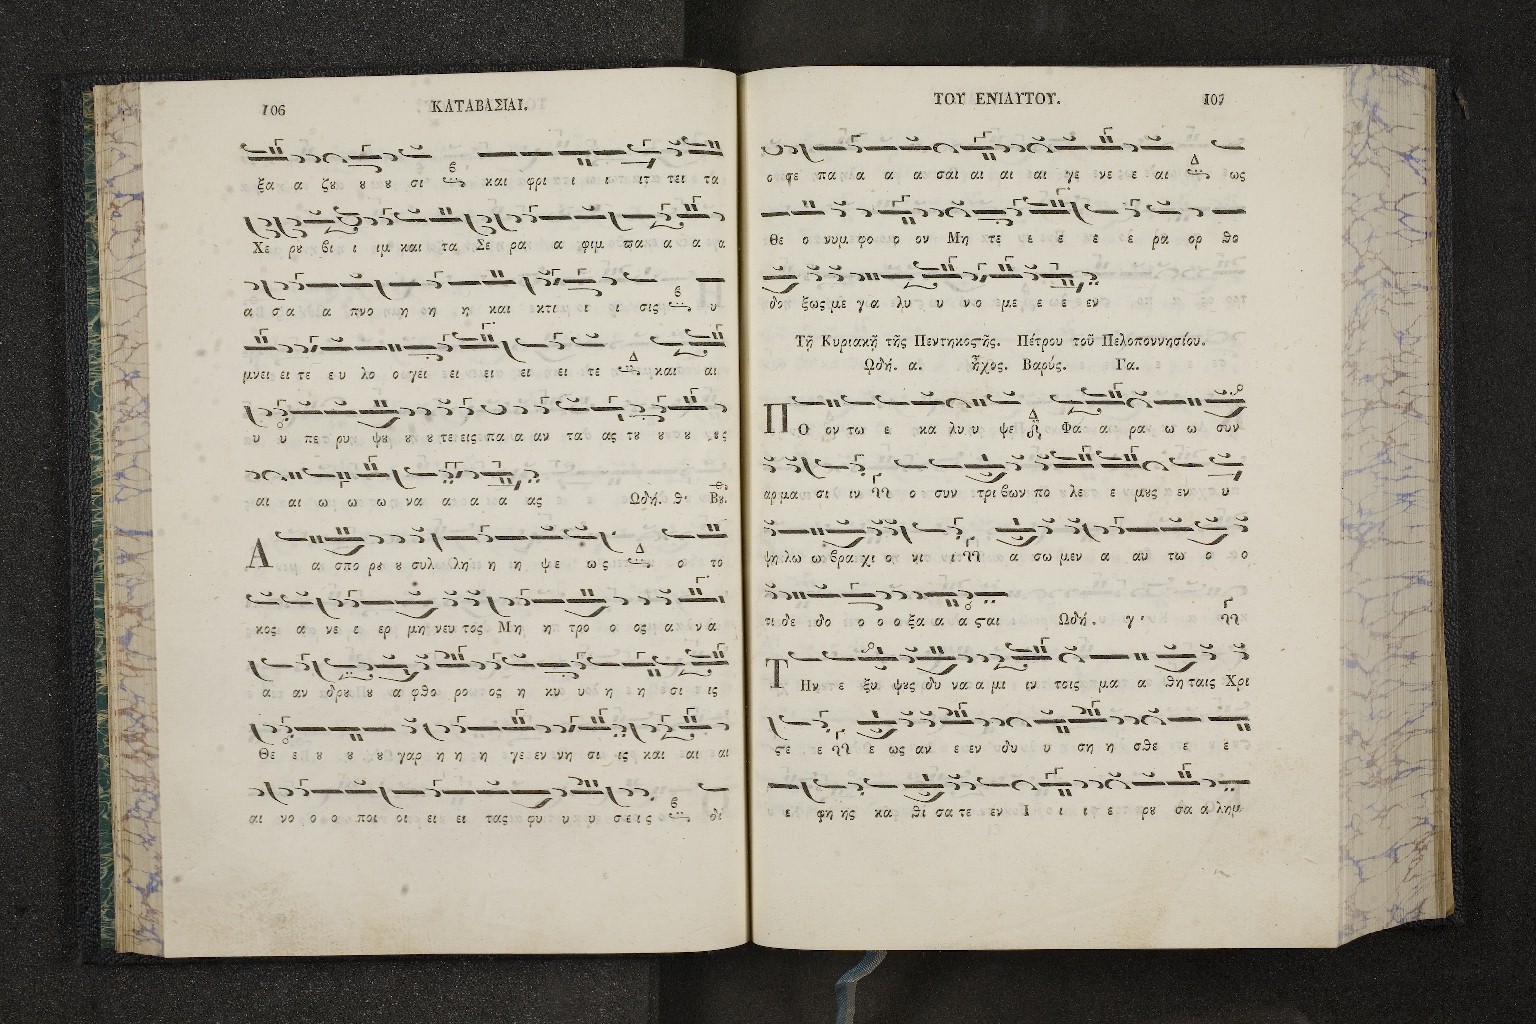 106
ΚΑΤΑΒΑΣΙΑΙ.
ξα α ζου ου ου σι και φρι ι ι ιτ τει τα
Χε ρου βι ι ιμ και τα Σε ρα α φιμ πα α α α
α σα α πνο η η η και κτι ι ι σις υ
μνει ει τε ευ λο ο γει ει ει ει ει τε και αι
υ υ πε ρυ ψου ου ου τε εις πα α αν τα ας του ου ου ους
αι αι ω ω ω να α α α ας Ωδή. θ. Βου.
Α α σπο ρου ου συλ λη η η ψε ως ο το
κος α νε ε ερ μη νευ τος Μη η τρο ο ος α να
α αν δρου ου α φθο ρο τος η κυ υ η η σι ις
Θε ε ου ου ου γαρ η η η γε εν νη σι ις και αι αι
αι νο ο ο ποι οι ει ει τας φυ υ υ σεις δι
ΤΟΥ ΕΝΙΑΥΤΟΥ.
107
ο φε πα α α α α σαι αι αι αι γε νε ε αι ως
Θε ο νυμ φο ο ον Μη τε ε ε ε ε ρα ορ θο
δο ξως με γα λυ υ νο με ε ε εν
Τῇ Κυριακῇ τῆς Πεντηκοστῆς. Πέτρου τοῦ Πελοποννησίου.
Ωδή. α. ἦχος. Βαρύς. Γα.
Π Ο ον τω ε κα λυ υ ψε Φα α ρα ω ω συν
αρ μα σι ιν ο συν τρι βων πο λε ε μους εν υ
ψη λω ω βρα χι ο νι ι α σω μεν α αυ τω ο ο
τι δε δο ο ο ο ξα α α σται Ωδή. γ.
Τ Ην ε ξυ ψους δυ να α μι ιν τοις μα α θη ταις Χρι
στε ε ε ως αν ε εν δυ υ ση η σθε ε ε
ε φη ης κα θι σα τε εν Ι ι ι ε ρου σα α λημ